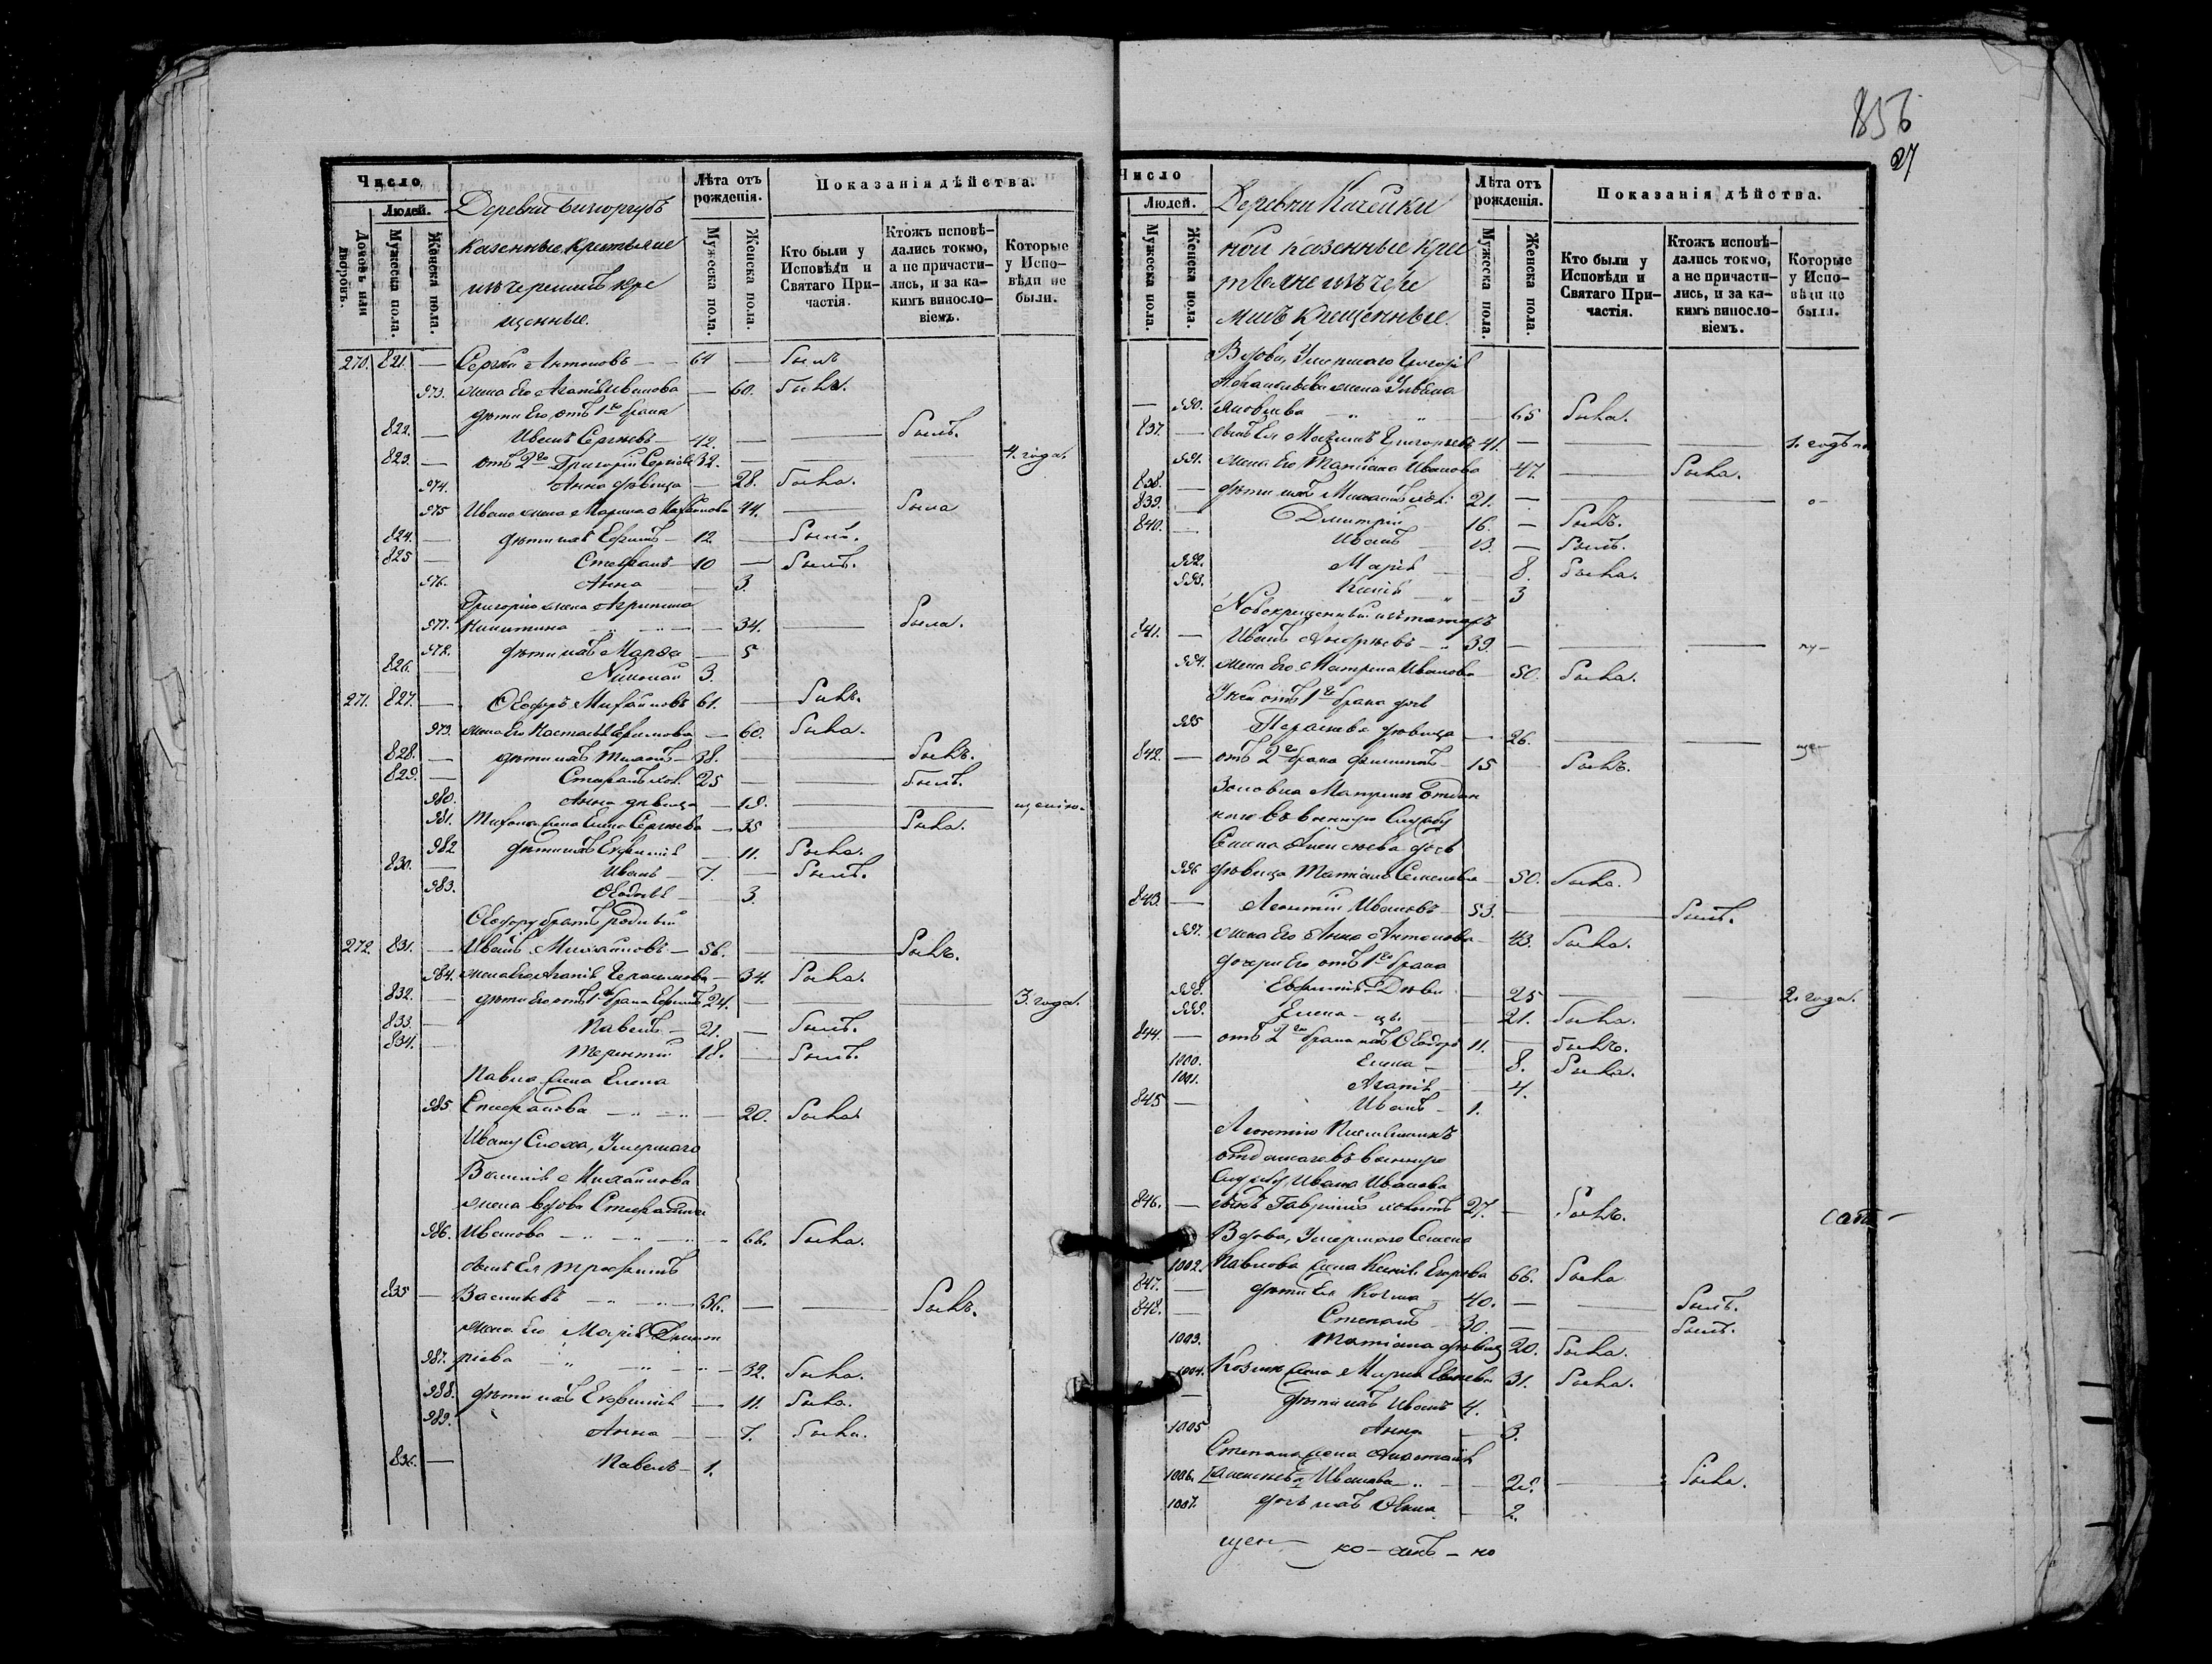 856
27
Число
Людей.
Домовъ или дворовъ.
Мужеска пола.
Женска пола.
Деревни
казенные крестьяне
изъ черемисъ кре
щенные.
Лѣта отъ рожденія.
Мужеска пола.
Женска пола.
Показанія дѣйства.
Кто были у Исповѣди и Святаго Причастія.
Ктожъ исповѣдались токмо, а не причастились, и за какимъ винословіемъ.
Которые у Исповѣди не были.
270. 821. — Сергѣй Антоновъ — 64 — былъ
973. жена его Агапія Иванова — 60. была.
дѣти его отъ 1го брака
822. — Иванъ Сергѣевъ — 42. — — былъ.
823. — отъ 2го Григорій 32. — — — 4. года.
974. Анна дѣвица — 28. была.
975 Ивана жена Марина 44. — была
824. — дѣти ихъ Ефимъ — 12 — былъ.
825 — Стефанъ — 10 — былъ.
976. Анна — 3.
Григорію жена Агрипина
977. Никитина — 34. — была.
978. дѣти ихъ Марѳа — 5
826. — Николай 3.
271. 827. — Ѳеодоръ Михайловъ 61. — былъ.
979. жена его Настасья Ефимова — 60. была.
828. — дѣти ихъ 38. — — былъ.
829. — Стефанъ хол. 25 — — былъ.
980. Анна дѣвица — 19. — —
981. жена Елена Сергѣева — 35 — была.
982 дѣти ихъ Евфимія — 11. была.
830. — Иванъ — 7. — былъ.
983. Ѳеодосія — 3.
Ѳеодору братъ родный
272. 831. — Иванъ Михайловъ — 56. — — былъ.
984. жена его Агапія Герасимова — 34. была.
832. — дѣти его отъ 1го брака Ефимъ 24. — — — 3. года.
833. — Павелъ — 21. — былъ.
834. — Терентій 18. — былъ.
Павла жена Елена
985 Стефанова — 20. была
Ивану сноха, умершаго
Василія Михайлова
жена вдова
986. Иванова — 66. была.
сынъ ея Трофимъ
835 — Васильевъ — 36. — — былъ.
жена его Марія Дмит
987. ріева — 32. была.
988. дѣти ихъ Евфимія — 11. была.
989. Анна — 7. была.
836. — Павелъ — 1.
Число
Людей.
Мужеска пола.
Женска пола.
Деревни Качейки
ной казенные крес
тьяне изъ чере
мисъ крещенные.
Лѣта отъ рожденія.
Мужеска пола.
Женска пола.
Показанія дѣйства.
Кто были у Исповѣди и Святаго Причастія.
Ктожъ исповѣдались токмо, а не причастились, и за какимъ винословіемъ.
Которые у Исповѣди не были.
Вдова, умершаго Григорія
жена Ульяна
990. Яковлева — 65 была.
837. — сынъ ея Максимъ Григорьевъ 41. — — — 1. годъ
991. жена его Татіана Иванова 47. — была.
838. — дѣти ихъ 21. —
839. — Димитрій 16. — былъ.
840. — Иванъ 13. — былъ.
992. Марія — 8. была.
993. Ксенія — 3
Новокрещенный изъ татаръ
841. — Иванъ Андреевъ — 39. — — —
994. жена его Матрена Иванова — 50. была.
У ней отъ 1го брака дочь
995 Параскева дѣвица — 26. — —
842. — отъ 2го брака Филиппъ — 15 былъ.
Золовка Матрены отдан
наго въ военную службу
Семена Алексѣева дочь
996 дѣвица Татіана Семенова — 50. была.
843. — Леонтій Ивановъ — 53. — — былъ.
997. жена его Анна Антонова — 43. была.
дочери его отъ 1го брака
998. Евфимія Дѣви — 25 — — 2. года.
999. Елена — цы. — 21. была.
844. — отъ 2го брака ихъ Ѳеодоръ 11. — былъ.
1000. Елена — 8. была.
1001. Агапія — 4.
845 — Иванъ — 1.
Леонтію племянникъ
отданнаго въ военную
службу Ивана Иванова
846. — сынъ Гавріилъ холостъ 27. — былъ.
Вдова, умершаго Семена
1002. Павлова жена Ксенія Егорова 66. была
847. — дѣти ея Козма — 40. — — былъ.
848. — Степанъ — 30. — — былъ.
1003. Татіана дѣвица 20. была.
1004. Козмы жена Марія 31. была.
— дѣти ихъ Иванъ 4.
1005 Анна — 3.
Степана жена Анастасія
1006. Иванова — 28. — была.
1007. дочь ихъ — 2.